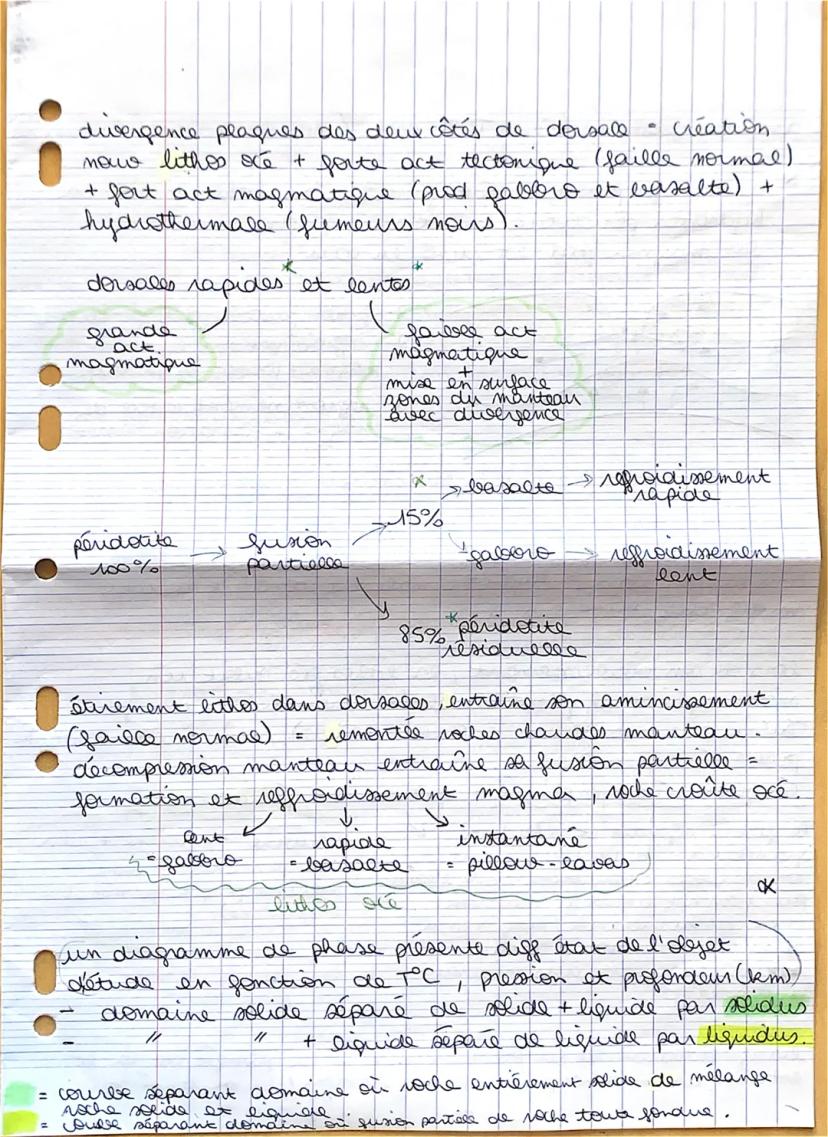 divergence plaques des deux côtés de dorsale = création
nouv lithos océ + forte act tectonique (faille normal)
+ fort act magmatique (prod gabbro et basalte) +
hydrothermale (fumeurs noirs).
dorsales rapides* et lentes*
grande
act
magmatique
faible act
magmatique
+
mise en surface
zones du manteau
avec divergence
péridotite
100%
→ fusion
partielle
→ 15%
x
→ basalte → reffroidissement
rapide
→ gabbro → reffroidissement
lent
85% *péridotite
résiduelle
étirement lithos dans dorsales, entraîne son amincissement
(faille normal) = remontée roches chaudes manteau.
décompression manteau entraîne sa fusion partielle =
formation et reffroidissement magma, roche croûte océ.
lent
= gabbro
rapide
= basalte
instantané
= pillow-lavas
lithos océ
α
un diagramme de phase présente diff état de l'objet
d'étude en fonction de T°C, pression et profondeur (km)
- domaine solide séparé de solide + liquide par solidus
- " " + liquide séparé de liquide par liquidus.
= courbe séparant domaine où roche entièrement solide de mélange
roche solide et liquide
= courbe séparant domaine où fusion partiele de roche toute fondue.